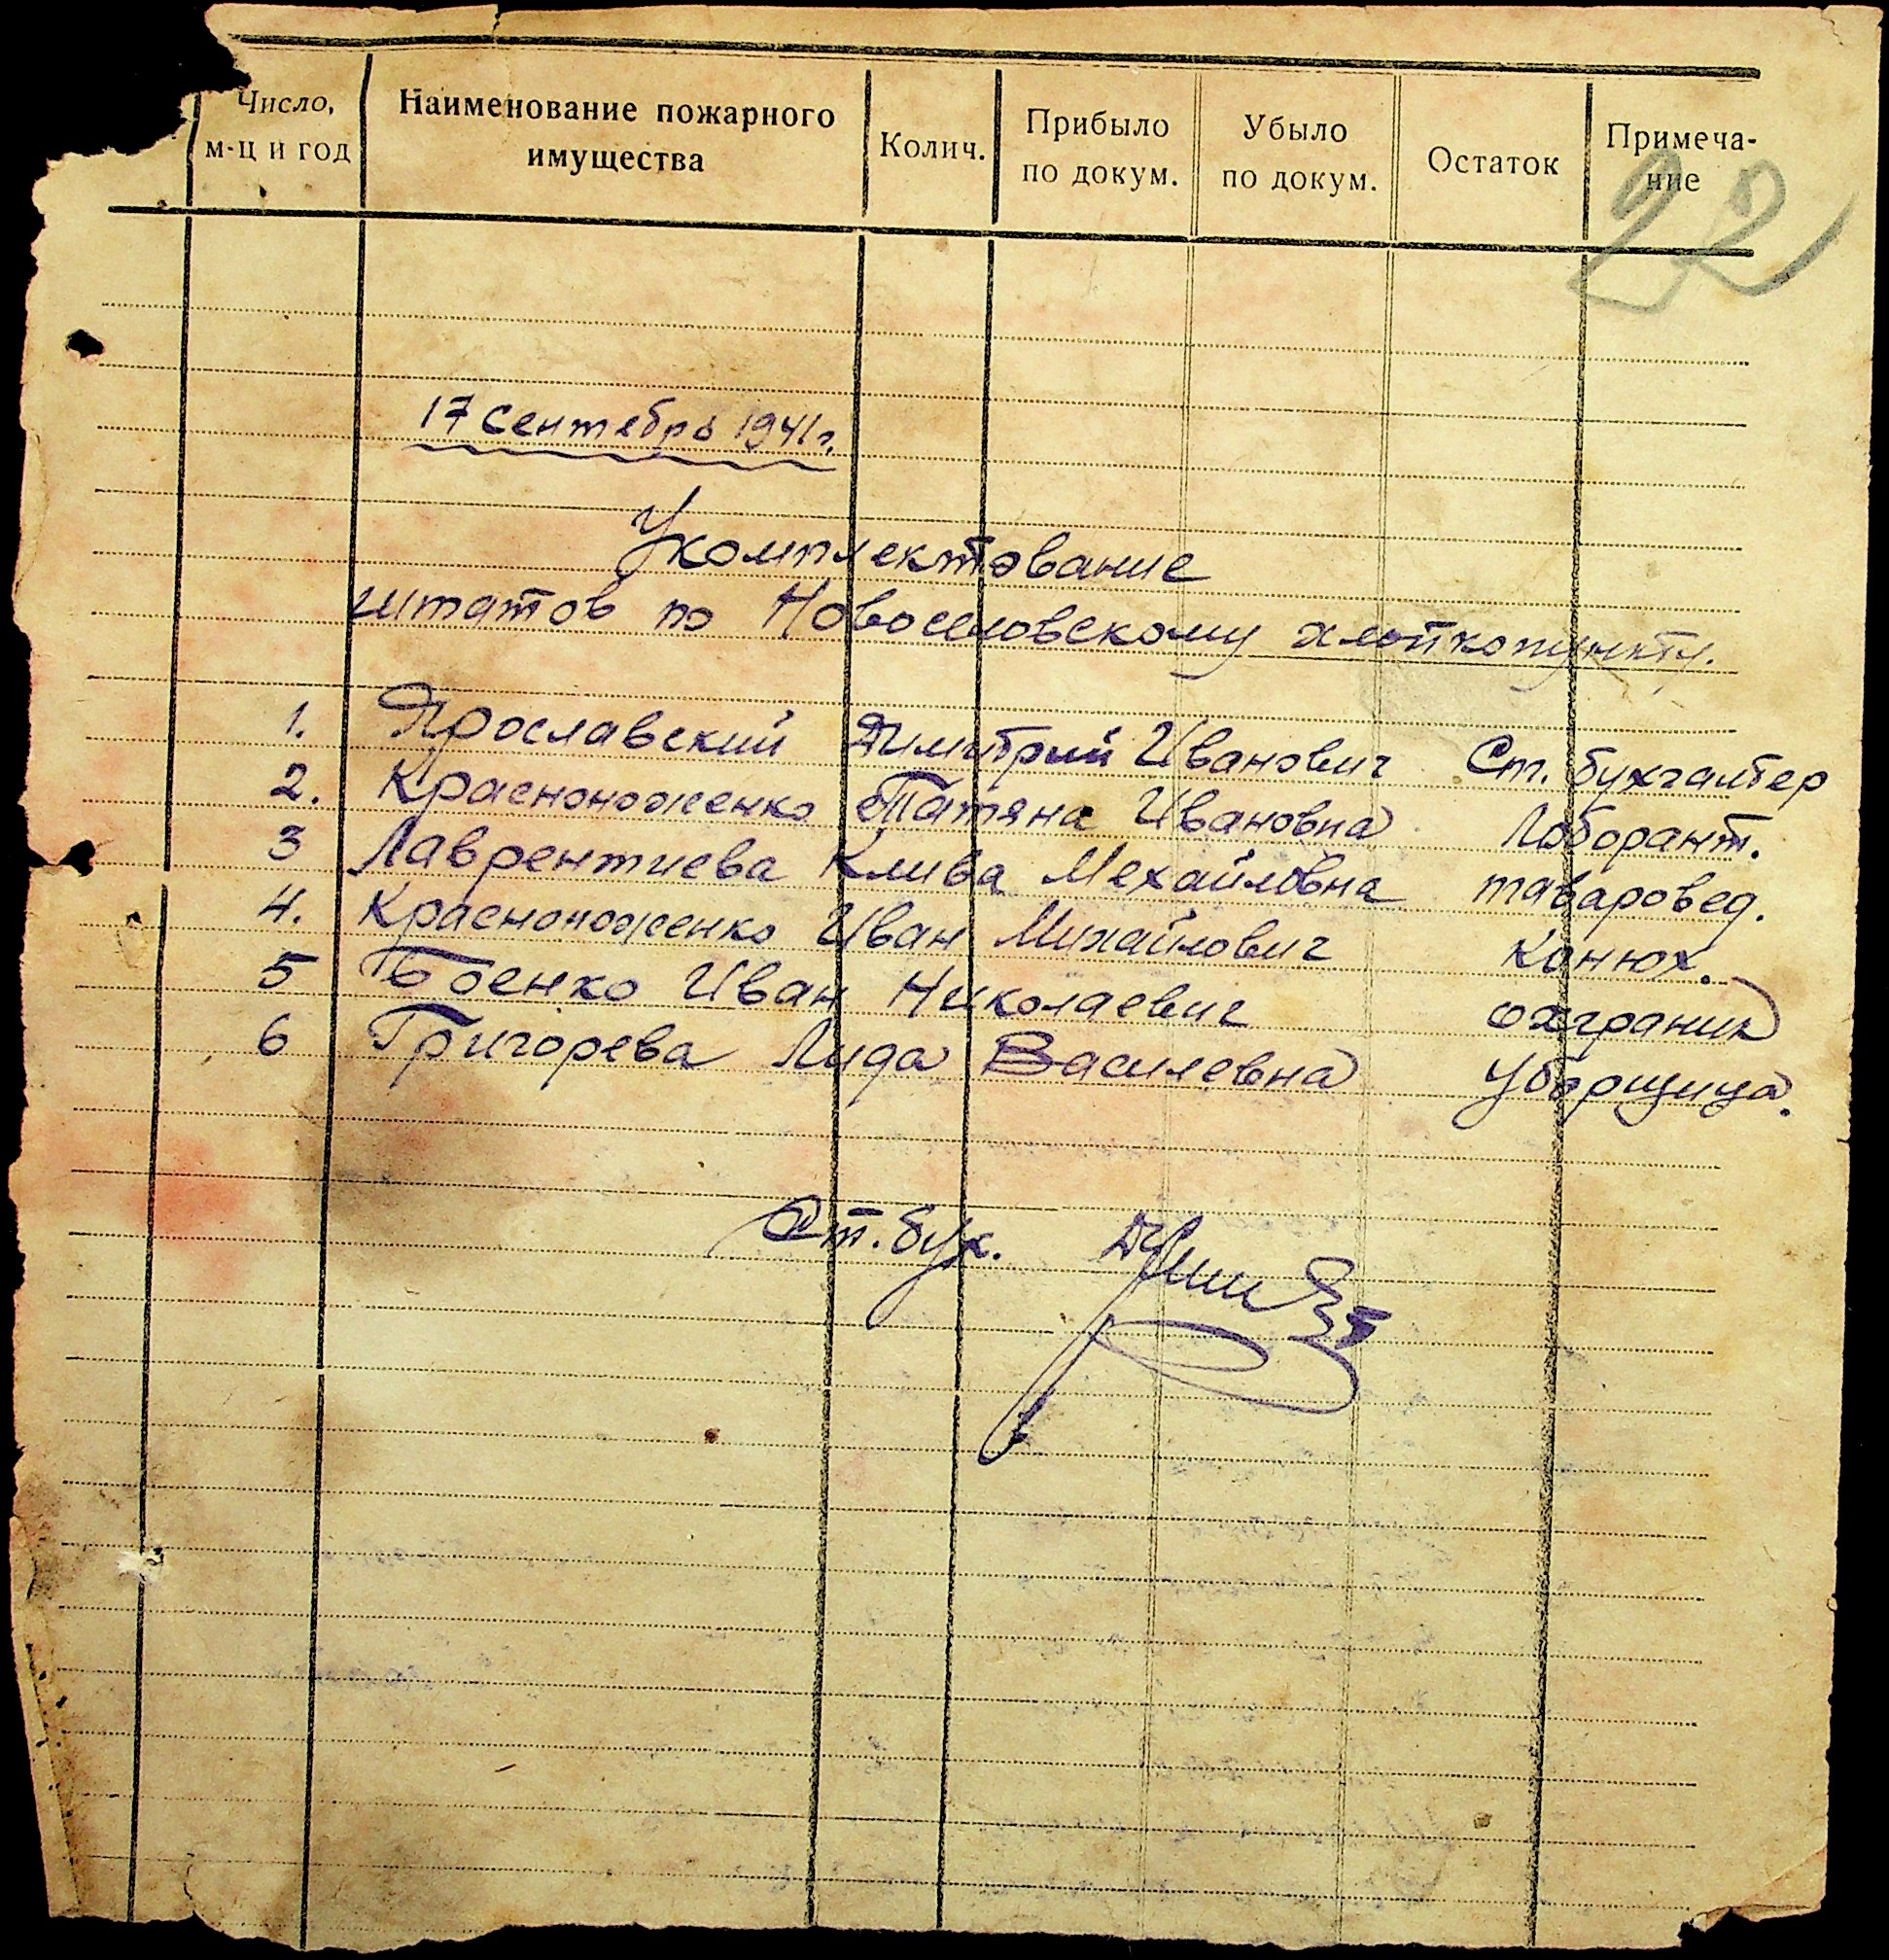 22
Число, м-ц и год | Наименование пожарного имущества | Колич. | Прибыло по докум. | Убыло по докум. | Остаток | Примеча-ние
17 Сентебрь 1941 г.
Укомплектование
штатов по Новоселовскому хлопкопункту.
1. Ярославский Димитрий Иванович Ст. бухгалтер
2. Красноноженко Татяна Ивановна Лоборант.
3 Лаврентиева Клива Мехайловна тавaровед.
4. Красноноженко Иван Михайлович Конюх.
5 Боенко Иван Николаевич охграник
6 Григорева Лида Василевна Уборщица.
Ст. бух.